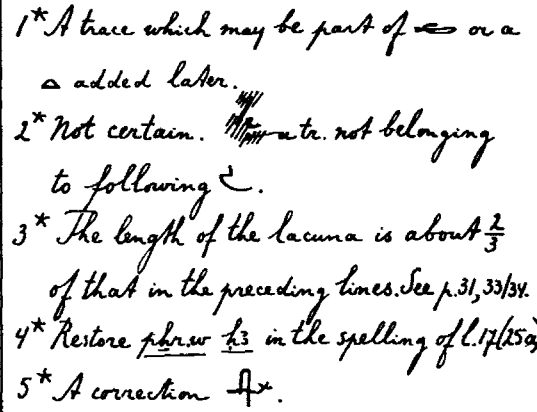 1* A trace which may be part of or a
added later.
2* Not certain. a tr. not belonging
to following
3* The length of the lacuna is about 2/3
of that in the preceding lines. See p. 31, 33/34.
4* Restore pẖr.w ḥ3 in the spelling of l. 17/(25a)
5* A correction